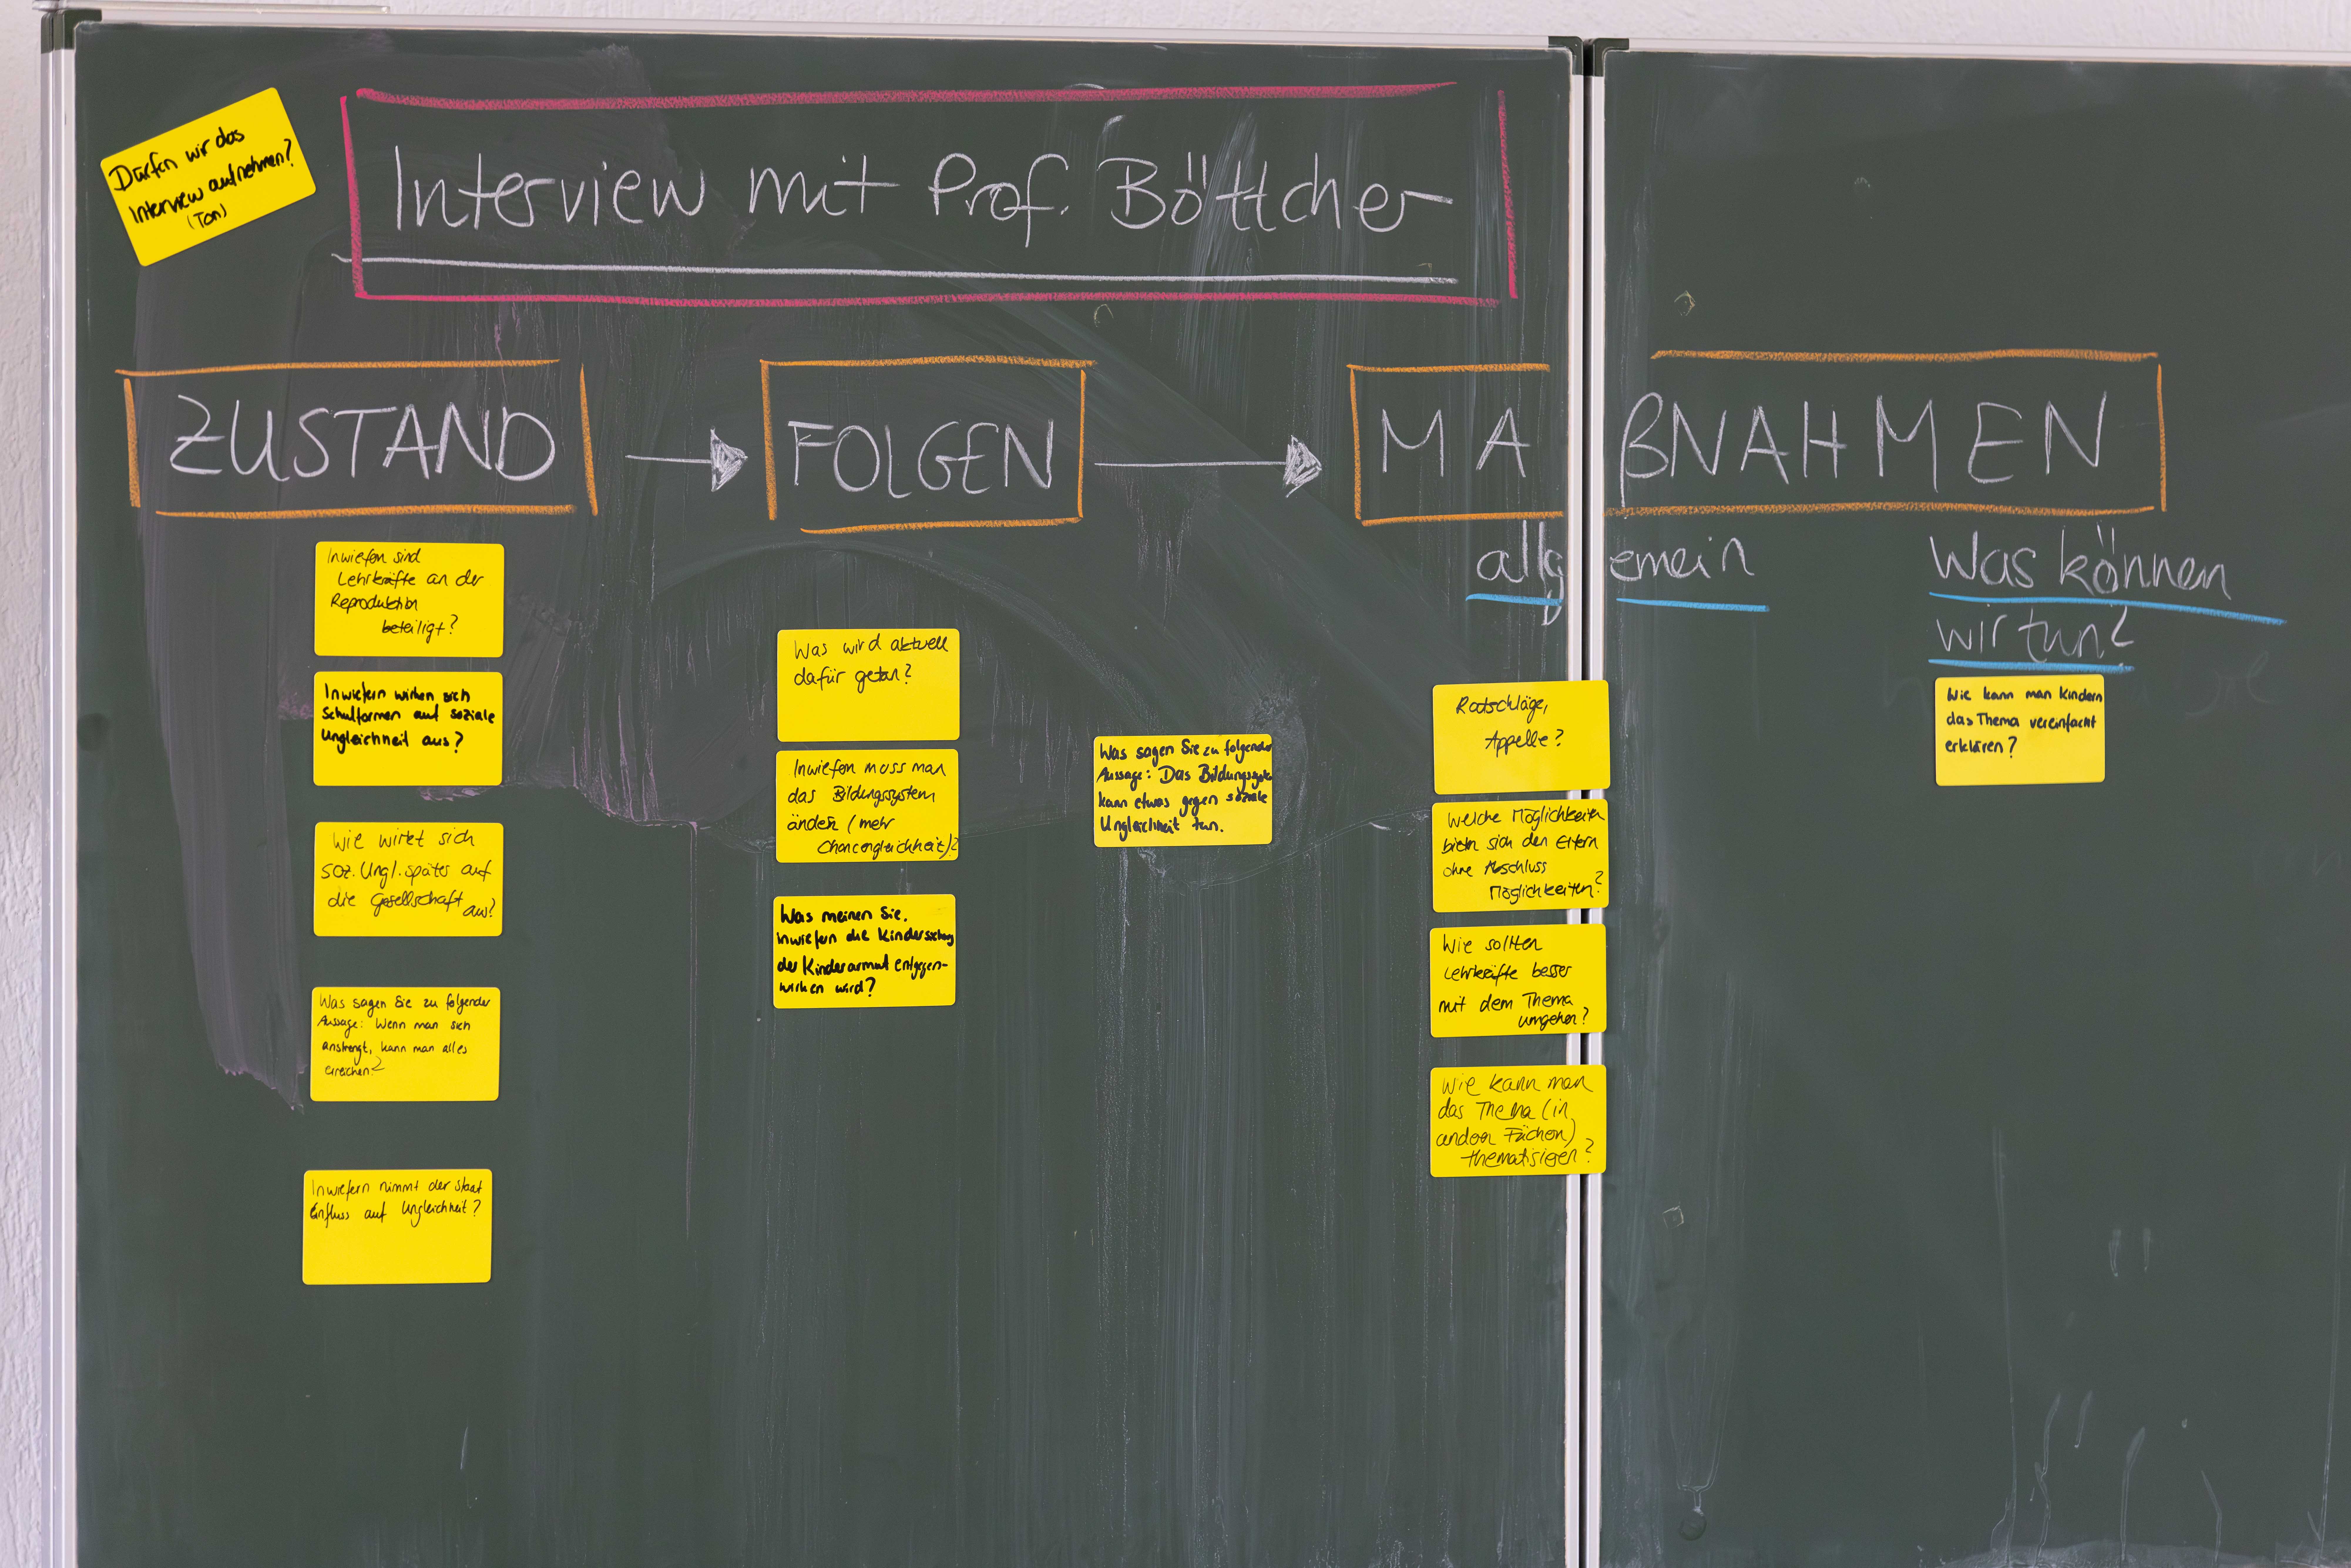 Dürfen wir das
Interview aufnehmen?
(Ton)
Interview mit Prof. Böttcher
ZUSTAND
FOLGEN
MAßNAHMEN
allgemein
Was können
wir tun?
Inwiefern sind
Lehrkräfte an der
Reproduktion
beteiligt?
Inwiefern wirken sich
Schulformen auf soziale
Ungleichheit aus?
Wie wirkt sich
soz. Ungl. später auf
die Gesellschaft aus?
Was sagen Sie zu folgender
Aussage: Wenn man sich
anstrengt, kann man alles
erreichen?
Inwiefern nimmt der Staat
Einfluss auf Ungleichheit?
Was wird aktuell
dafür getan?
Inwiefern muss man
das Bildungssystem
ändern (mehr
Chancengleichheit)?
Was meinen Sie,
inwiefern die Kindersicherung
der Kinderarmut entgegen-
wirken wird?
Was sagen Sie zu folgender
Aussage: Das Bildungssystem
kann etwas gegen soziale
Ungleichheit tun.
Ratschläge,
Appelle?
Welche Möglichkeiten
bieten sich den Eltern
ohne Abschluss
Möglichkeiten?
Wie sollten
Lehrkräfte besser
mit dem Thema
umgehen?
Wie kann man
das Thema (in
anderen Fächern)
thematisieren?
Wie kann man Kindern
das Thema vereinfacht
erklären?